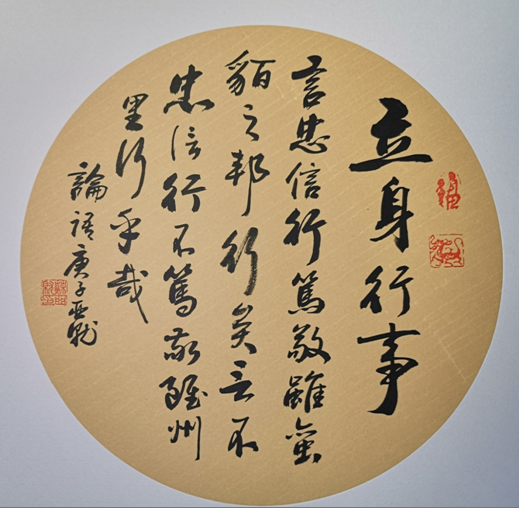 立身行事
言忠信行篤敬雖蠻
貊之邦行矣言不
忠信行不篤敬雖州
里行乎哉
論語庚子